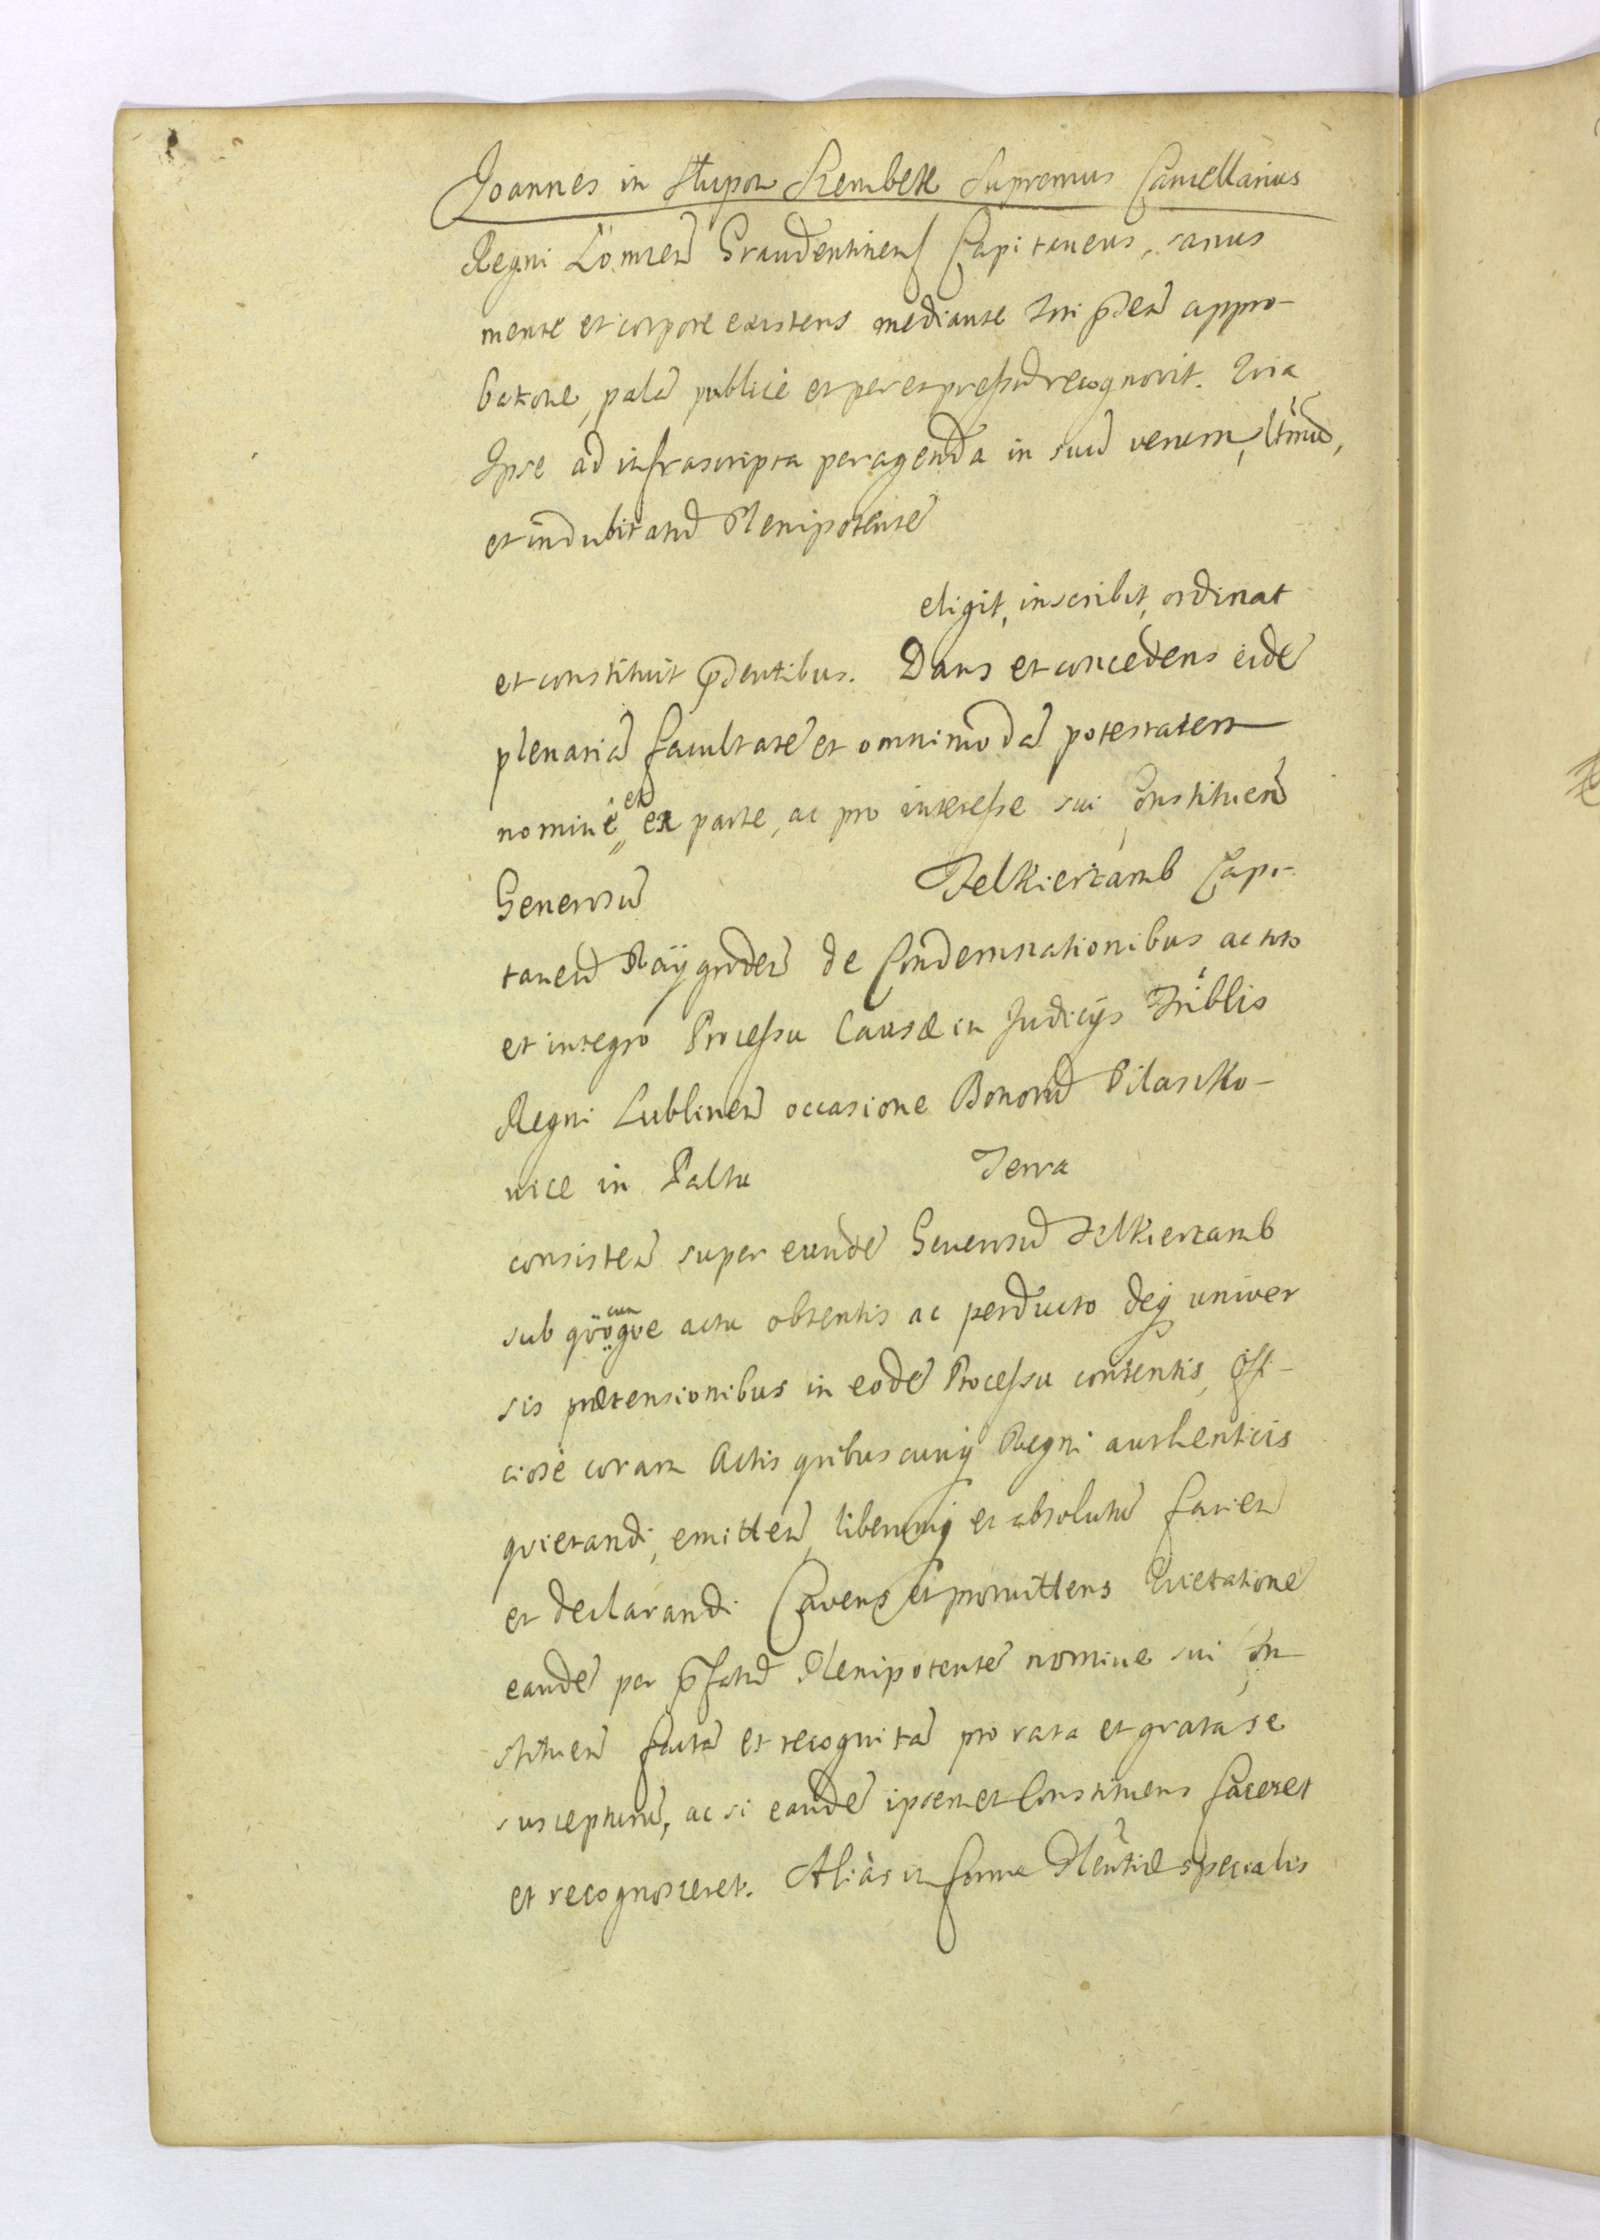 Joannes in Słupow Szembek Supremus Cancellarius
Regni Łomzen̄ Graudentinens̄ Capitaneus, sanus
mente et corpore existens mediante Iuri p̄den̄ appro-
batione, palā publicè et per expressū recognovit. Quia
Ipse ad infrascripta peragenda in suū verum, lt̄imū,
et indubitatū Plenipotentē
eligit, inscribit, ordinat
et constituit p̄sentibus. Dans et concedens eidē
plenariā facultatē et omnimodā potestatem
nominé et ex parte, ac pro interesse sui Constituen̄
Generosū Felkierzamb Capi-
taneū Raÿgroden̄ de Condemnationibus ac toto
et integro Processu Causæ in Judicijs Tribl̄is
Regni Lublinen̄ occasione Bonorū Pilasko-
vice in Paltu Terra
consisten̄ super eundē Generosū Felkierzamb
sub qūocunqve actu obtentis ac perducto deq̄ univer
sis prætensionibus in eodē Processu contentis, Offi-
ciosè coram Actis qvibuscunq̄ Regni authenticis
qvietandi, emitten̄, liberumq̄ et absolutū facien̄
et declarandi. Cavens et promittens Qvietationē
eandē per p̄fatū Plenipotentē nomine sui Con-
stituen̄ factā et recognitā pro rata et grata se
suscepturū, ac si eandē ipsemet Constituens faceret
et recognosceret. Aliàs in forma Pleñtiæ specialis